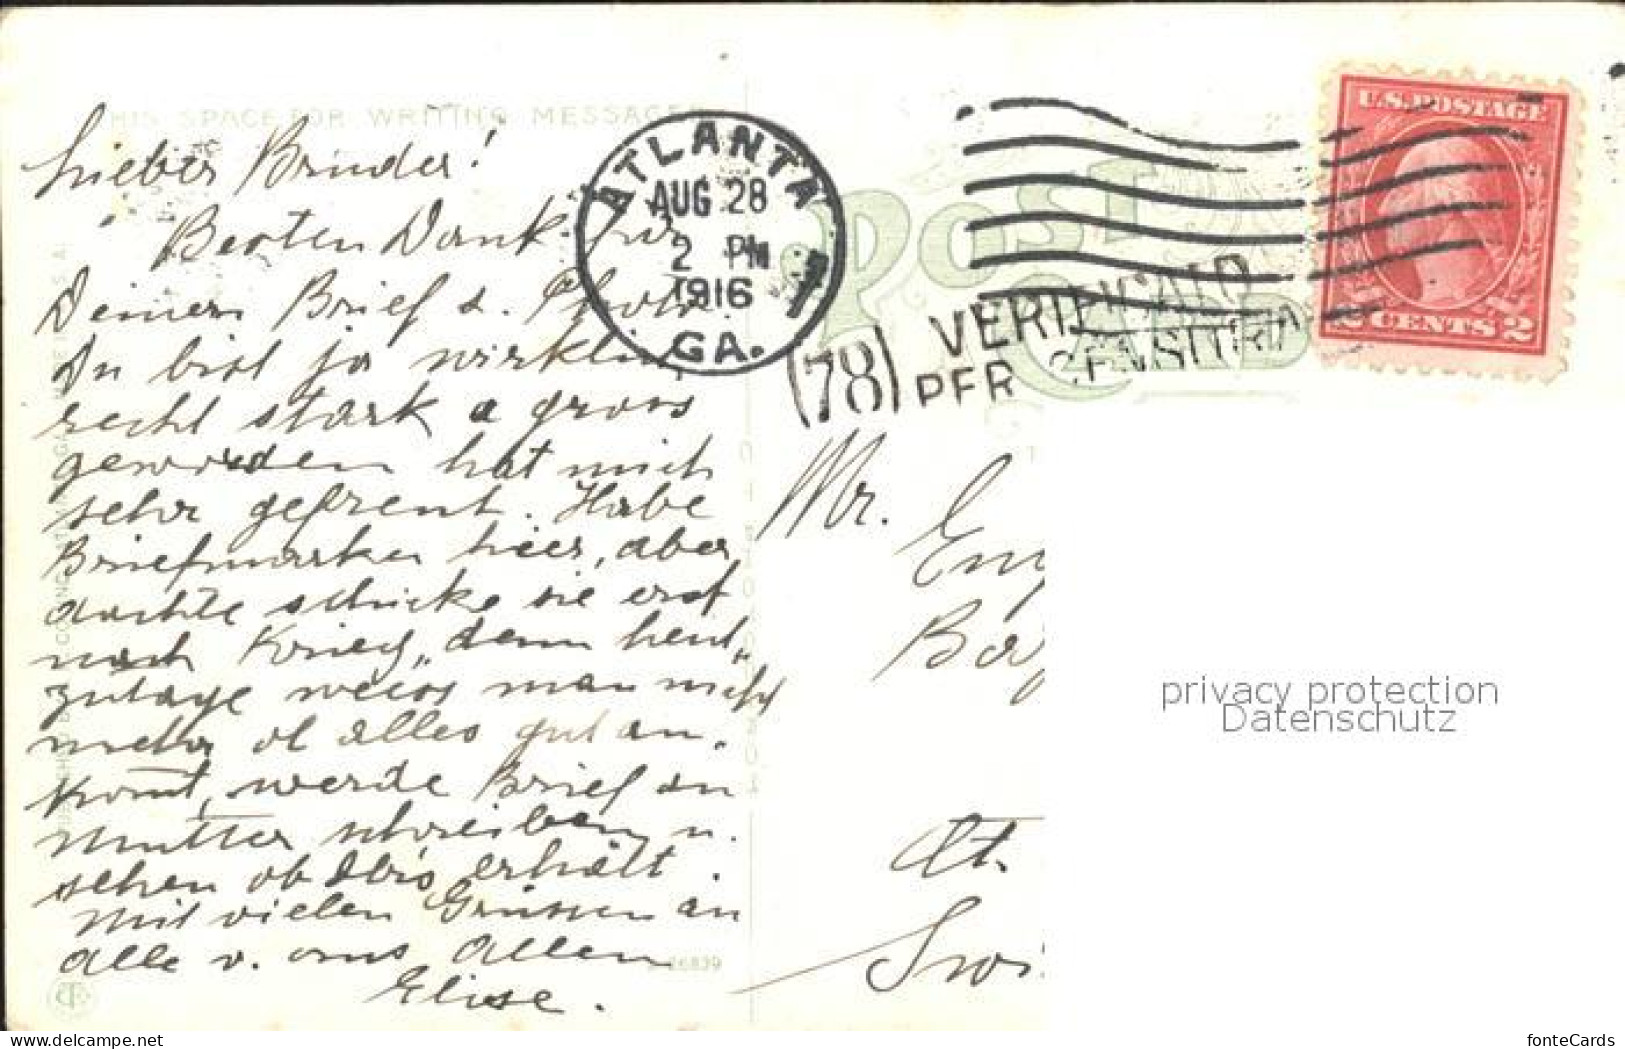 THIS SPACE FOR WRITING MESSAGES
Lieber Bruder!
Besten Dank für
Deinen Brief u. Photo.
Du bist ja wirklich
recht stark u gross
geworden hat mich
sehr gefreut. Habe
Briefmarken hier, aber
dachte schicke sie erst
nach Krieg, denn heut„
zutage weiss man nicht
mehr ob alles gut an„
komt, werde Brief an
Mutter schreiben u.
sehen ob sie's erhält.
Mit vielen Grüssen an
alle v. uns allen
Elise.
ATLANTA
AUG 28
2 PM
1916
GA.
POST CARD
(78) VERIFICATO
PER CENSURA
U.S. POSTAGE
2 CENTS 2
Mr.
Eng
Ba
St.
Swi
26839
privacy protection
Datenschutz
www.delcampe.net
fonteCards